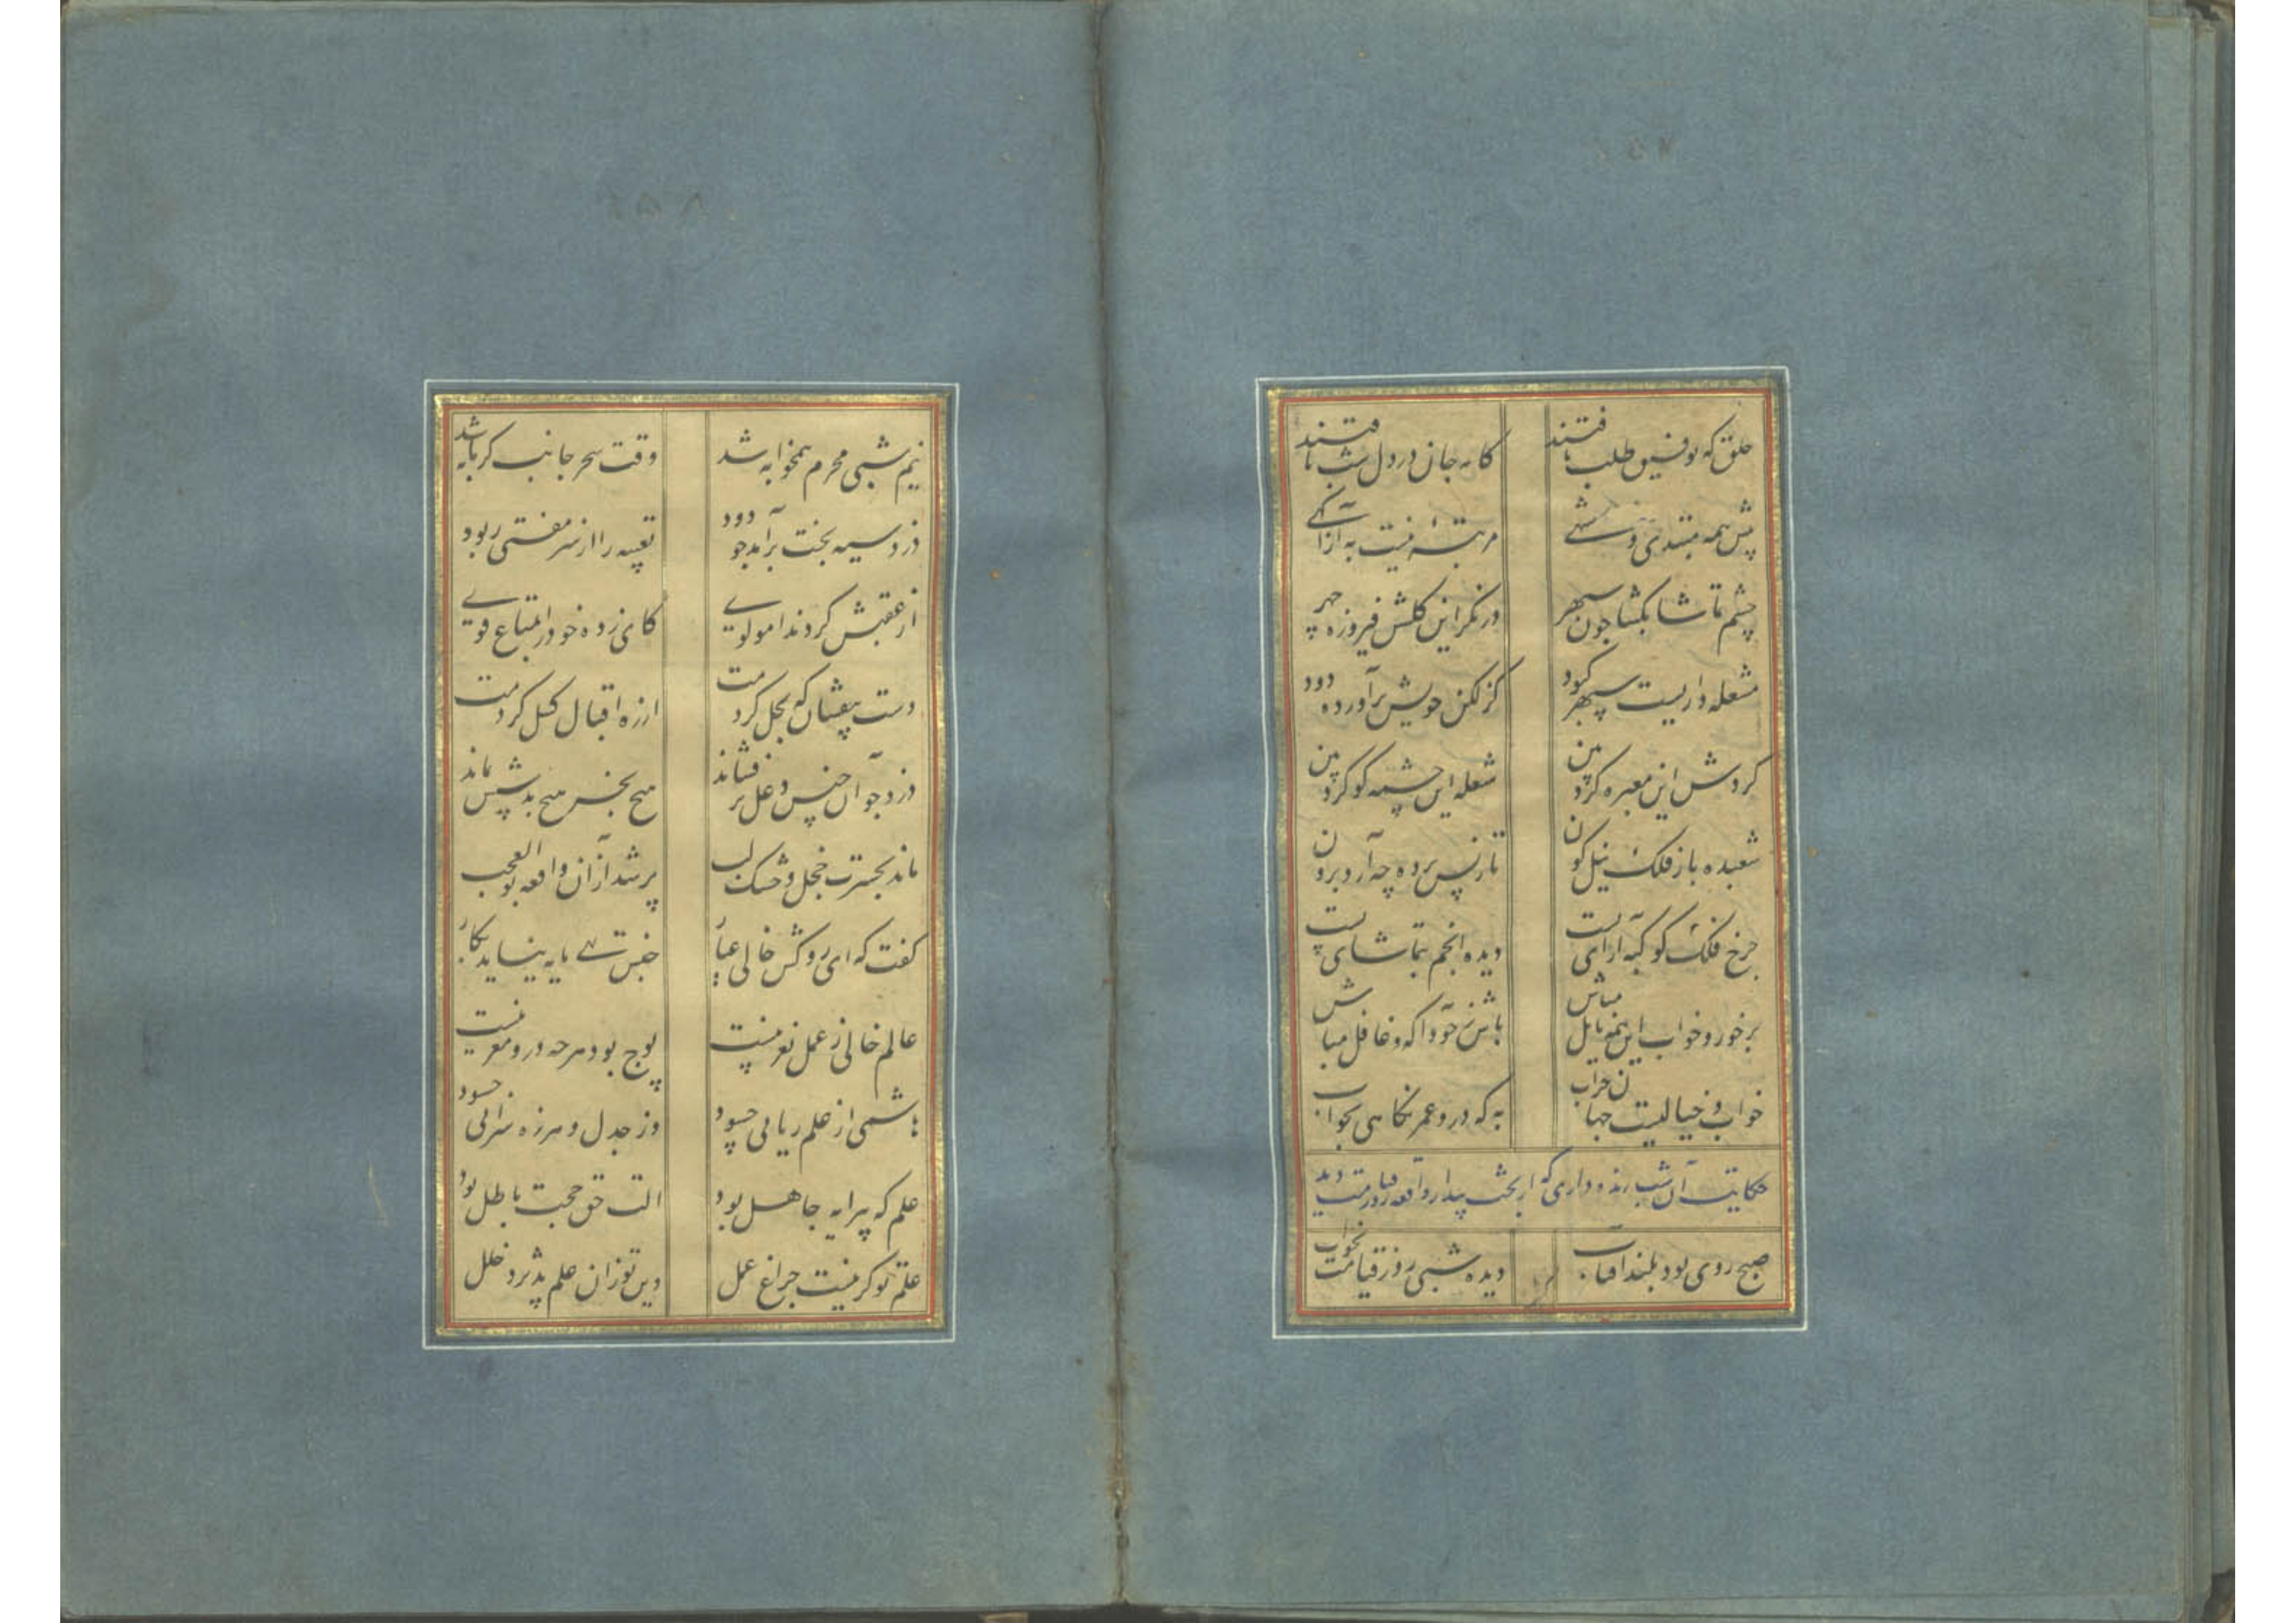 خلق که توفیق طلب یافتند
کاینه جان در دل شب یافتند
پیش همه مبتدی و منتهی
مرتبهٔ نیست به از آگهی
چشم تماشا بکشا چون سپهر
درنکر این کلشن فیروزه چهر
مشعله داریست سپهر کبود
کز لکن خویش برآورده دود
کردش این معبره کرد بین
شعله این چشمه کو کرد بین
شعبده باز فلک نیل کون
تا ز پس پرده چه آرد برون
چرخ فلک کوکبه آرای تست
دیده انجم بتماشای تست
بر خور و خواب این همه مایل مباش
باش ز خود آکه و غافل مباش
خواب و خیالیست جهان خراب
به که درو عمر نکاهی بخواب
حکایت آن شب زنده داری که از بخت بیدار واقعه روز قیامت دید
صبح روی بود بلند آفتاب
دیده شبی روز قیامت بخواب
نیم شبی محرم همخوابه شد
وقت سحر جانب کرمابه شد
دزد سیه بخت برآمد چو دود
تعبیه را از سر مفتی ربود
از عقبش کرد ندا مولوی
کای زده خود را بمتاع قوی
دست بیفشان که بحل کردمت
از ره اقبال کسل کردمت
دزد چو آن جنس دغل برفشاند
هیچ بخسر هیچ بدستش نماند
ماند بحسرت خجل و خشک لب
پر شد از آن واقعه بوالعجب
کفت که ای روکش خالی عیار
جنس تهی مایه نیاید بکار
عالم خالی ز عمل نغز نیست
پوچ بود هر چه درو مغز نیست
هاشمی از علم ریایی چسود
وز جدل و هرزه سرائی چسود
علم که پیرایه جاهل بود
الت حق حجت باطل بود
علم تو کر نیست چراغ عمل
دین تو زان علم پذیرد خلل